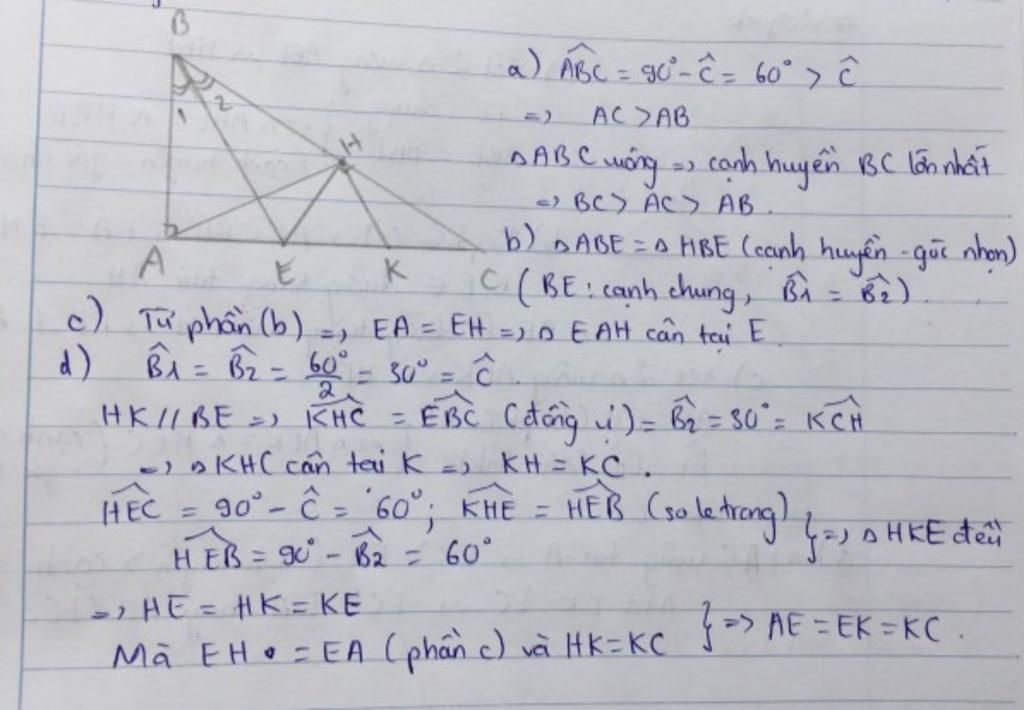 B
1 2
H
A E K C
a) $\widehat{ABC}$ = 90° - $\hat{C}$ = 60° > $\hat{C}$
=> AC > AB
△ABC vuông => cạnh huyền BC lớn nhất
=> BC > AC > AB.
b) △ABE = △HBE (cạnh huyền - góc nhọn)
(BE: cạnh chung, $\hat{B}$1 = $\hat{B}$2).
c) Từ phần (b) => EA = EH => △EAH cân tại E.
d) $\hat{B}$1 = $\hat{B}$2 = $\frac{60°}{2}$ = 30° = $\hat{C}$.
HK // BE => $\widehat{KHC}$ = $\widehat{EBC}$ (đồng vị) = $\hat{B}$2 = 30° = $\widehat{KCH}$
=> △KHC cân tại K => KH = KC.
$\widehat{HEC}$ = 90° - $\hat{C}$ = 60°; $\widehat{KHE}$ = $\widehat{HEB}$ (so le trong)
$\widehat{HEB}$ = 90° - $\hat{B}$2 = 60° } => △HKE đều
=> HE = HK = KE
Mà EH = EA (phần c) và HK = KC } => AE = EK = KC.